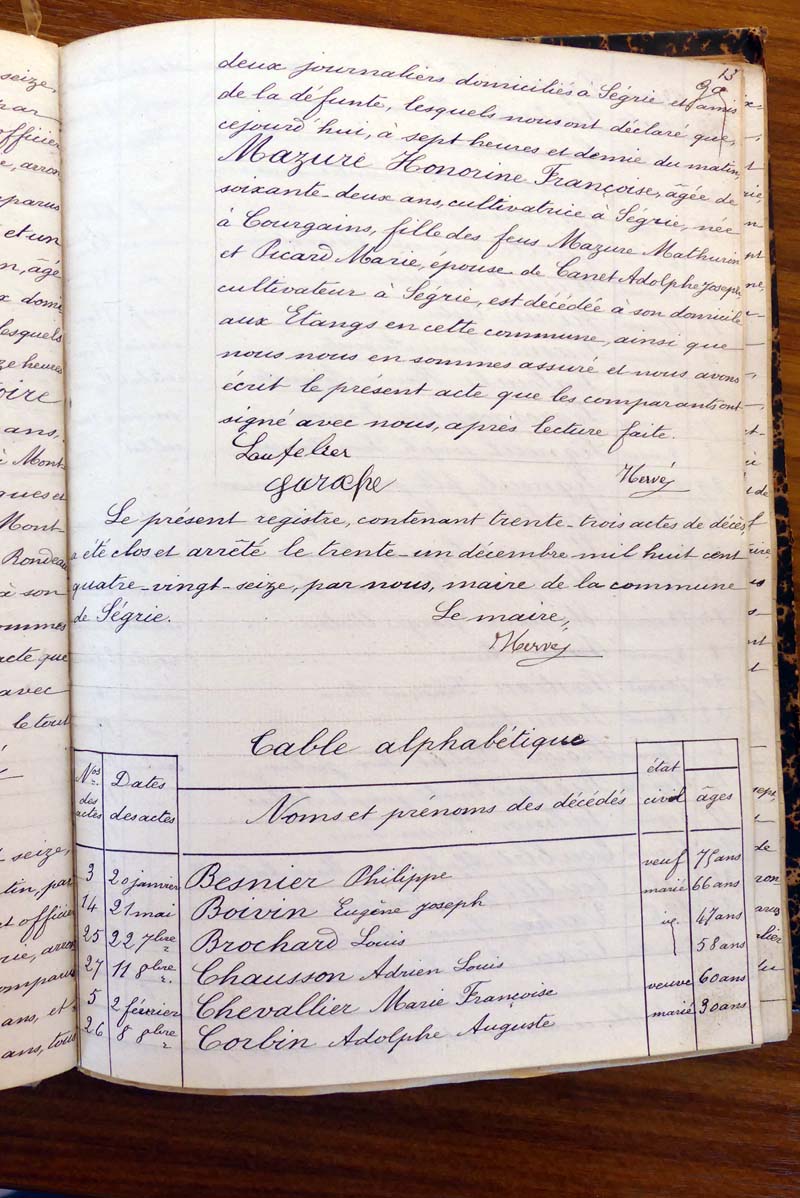 13
deux journaliers domiciliés à Ségrie et amis
de la défunte, lesquels nous ont déclaré que,
cejourd'hui, à sept heures et demie du matin,
Mazure Honorine Françoise, âgée de
soixante-deux ans, cultivatrice à Ségrie, née
à Courgains, fille des feus Mazure Mathurin
et Picard Marie, épouse de Canet Adolphe Joseph,
cultivateur à Ségrie, est décédée à son domicile
aux Etangs en cette commune, ainsi que
nous nous en sommes assuré et nous avons
écrit le présent acte que les comparants ont
signé avec nous, après lecture faite.
Hervé
Le présent registre, contenant trente-trois actes de décès,
a été clos et arrêté le trente-un décembre mil huit cent
quatre-vingt-seize, par nous, maire de la commune
de Ségrie. Le maire,
Hervé
Table alphabétique
Nos des actes Dates des actes Noms et prénoms des décédés état civil âges
3 20 janvier Besnier Philippe veuf 75 ans
14 21 mai Boivin Eugène Joseph marié 66 ans
25 22 7bre Brochard Louis 47 ans
27 11 8bre Chausson Adrien Louis 58 ans
5 2 février Chevallier Marie Françoise veuve 60 ans
26 8 8bre Corbin Adolphe Auguste marié 30 ans